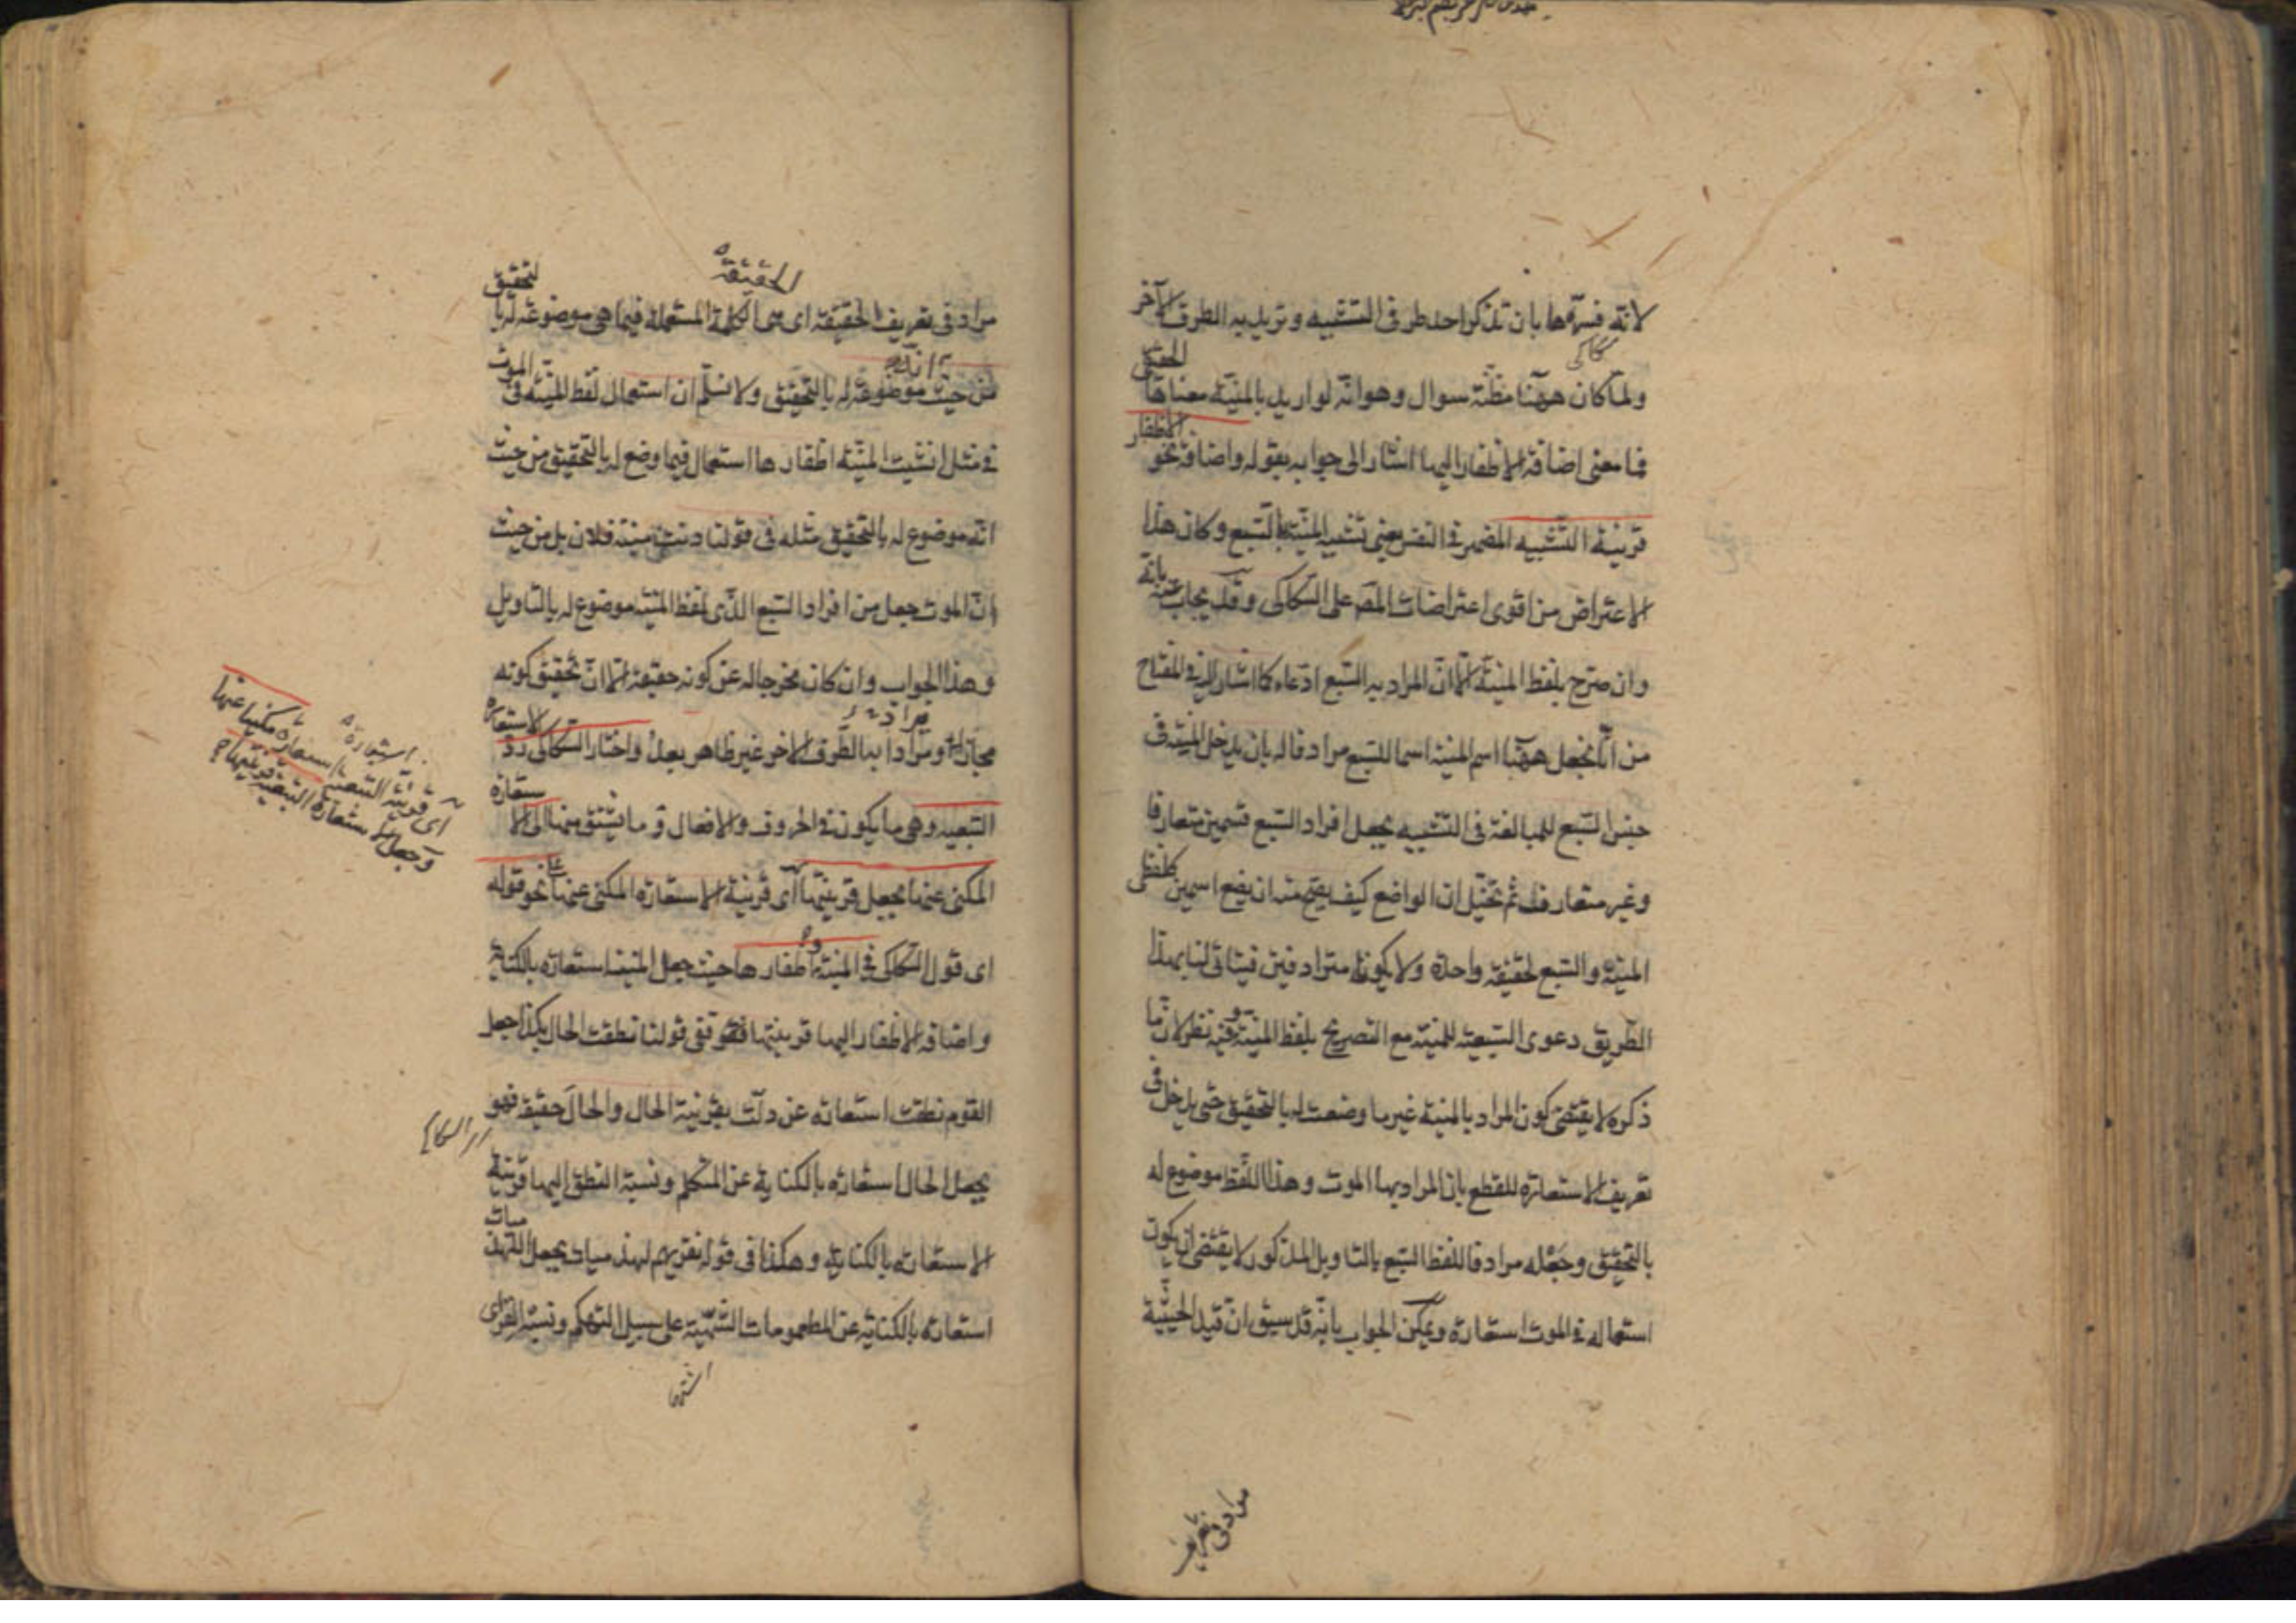 لانه فسرها بان تذكر احد طرفى التشبيه وتريد به الطرف الآخر
ولما كان ههنا مظنة سوال وهو انه لو اريد بالمنية معناها الحقيقى
فما معنى اضافة الاظفار اليها اشار الى جوابه بقوله واضافة نحو الاظفار
قرينة التشبيه المضمر فى النفس يعنى تشبيه المنية بالسبع وكان هذا
الاعتراض من اقوى اعتراضات المص على السكاكى وقد يجاب عنه بانه
وان صرح بلفظ المنية الا ان المراد به السبع ادعاء كما اشار اليه فى المفتاح
من انا نجعل ههنا اسم المنية اسما للسبع مرادفا له بان يدخل المنية فى
جنس السبع للمبالغة فى التشبيه بجعل افراد السبع قسمين متعارفا
وغير متعارف ثم تخيل ان الواضع كيف يصح منه ان يضع اسمين كلفظى
المنية والسبع لحقيقة واحدة ولا يكونا مترادفين فيتاتى لنا بهذا
الطريق دعوى السبعية للمنية مع التصريح بلفظ المنية وفيه نظر لان ما
ذكره لا يقتضى كون المراد بالمنية غير ما وضعت له بالتحقيق حتى يدخل فى
تعريف الاستعارة للقطع بان المراد بها الموت وهذا اللفظ موضوع له
بالتحقيق وجعله مرادفا للفظ السبع بالتاويل المذكور لا يقتضى ان يكون
استعماله فى الموت استعارة ويمكن الجواب بانه قد سبق ان قيد الحيثية
مراد فى تعريف
الحقيقة
مراد فى تعريف الحقيقة اى هى الكلمة المستعملة فيما هى موضوعة له بالتحقيق
من حيث انه موضوعة له بالتحقيق ولا نسلم ان استعمال لفظ المنية فى الموت
فى مثل انشبت المنية اظفارها استعمال فيما وضع له بالتحقيق من حيث
انه موضوع له بالتحقيق مثله فى قولنا دنت منية فلان بل من حيث
ان الموت جعل من افراد السبع الذى لفظ المنية موضوع له بالتاويل
وهذا الجواب وان كان مخرجا له عن كونه حقيقة الا ان تحقيق كونه
مجازا ومرادا به الطرف الاخر غير ظاهر بعد واختار السكاكى رد الاستعارة
التبعية وهى ما يكون فى الحروف والافعال وما يشتق منها الى الاستعارة
المكنى عنها بجعل قرينتها اى قرينة الاستعارة المكنى عنها على نحو قوله
اى قول السكاكى فى المنية واظفارها حيث جعل المنية استعارة بالكناية
واضافة الاظفار اليها قرينتها ففى قولنا نطقت الحال بكذا جعل
القوم نطقت استعارة عن دلت بقرينة الحال والحال حقيقة فهو
اى السكاكى
يجعل الحال استعارة بالكناية عن المتكلم ونسبة النطق اليها قرينة
الاستعارة بالكناية وهكذا فى قوله نقريهم لهذميات يجعل اللهذميات
استعارة بالكناية عن المطعومات الشهية على سبيل التهكم ونسبة القرى
استعارة
اى قرينة التبعية استعارة مكنيا عنها
وجعل الاستعارة التبعية قرينتها